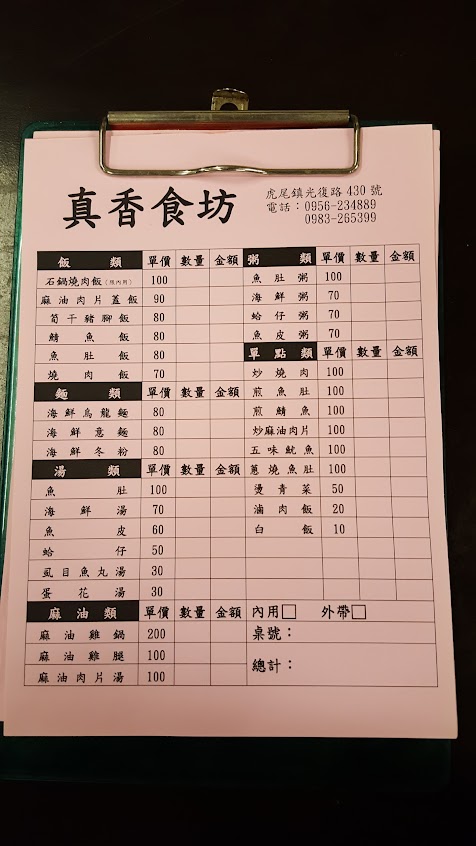 真香食坊
虎尾鎮光復路 430 號
電話：0956-234889
0983-265399
飯類 單價 數量 金額
石鍋燒肉飯(限內用) 100
麻油肉片蓋飯 90
筍干豬腳飯 80
鯖魚飯 80
魚肚飯 80
燒肉飯 70
麵類 單價 數量 金額
海鮮烏龍麵 80
海鮮意麵 80
海鮮冬粉 80
湯類 單價 數量 金額
魚肚 100
海鮮湯 70
魚皮 60
蛤仔 50
虱目魚丸湯 30
蛋花湯 30
麻油類 單價 數量 金額
麻油雞鍋 200
麻油雞腿 100
麻油肉片湯 100
粥類 單價 數量 金額
魚肚粥 100
海鮮粥 70
蛤仔粥 70
魚皮粥 70
單點類 單價 數量 金額
炒燒肉 100
煎魚肚 100
煎鯖魚 100
炒麻油肉片 100
五味魷魚 100
蔥燒魚肚 100
燙青菜 50
滷肉飯 20
白飯 10
內用□ 外帶□
桌號：
總計：